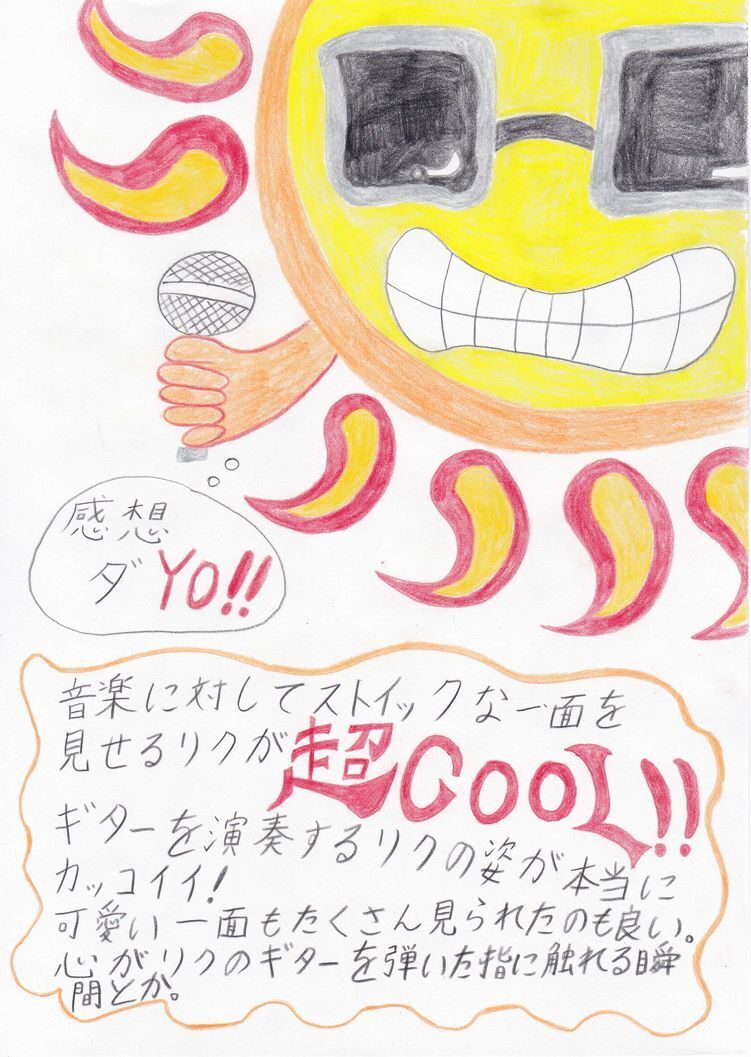 感想
ダYO!!
音楽に対してストイックな一面を
見せるリクが超COOL!!
ギターを演奏するリクの姿が本当に
カッコイイ!
可愛い一面もたくさん見られたのも良い。
心がリクのギターを弾いた指に触れる瞬
間とか。